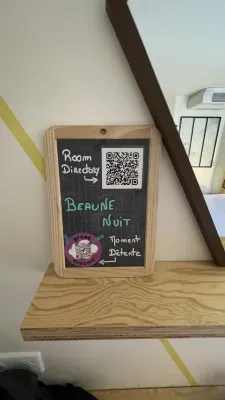 Room
Directory
BEAUNE
NUIT
Moment
Détente